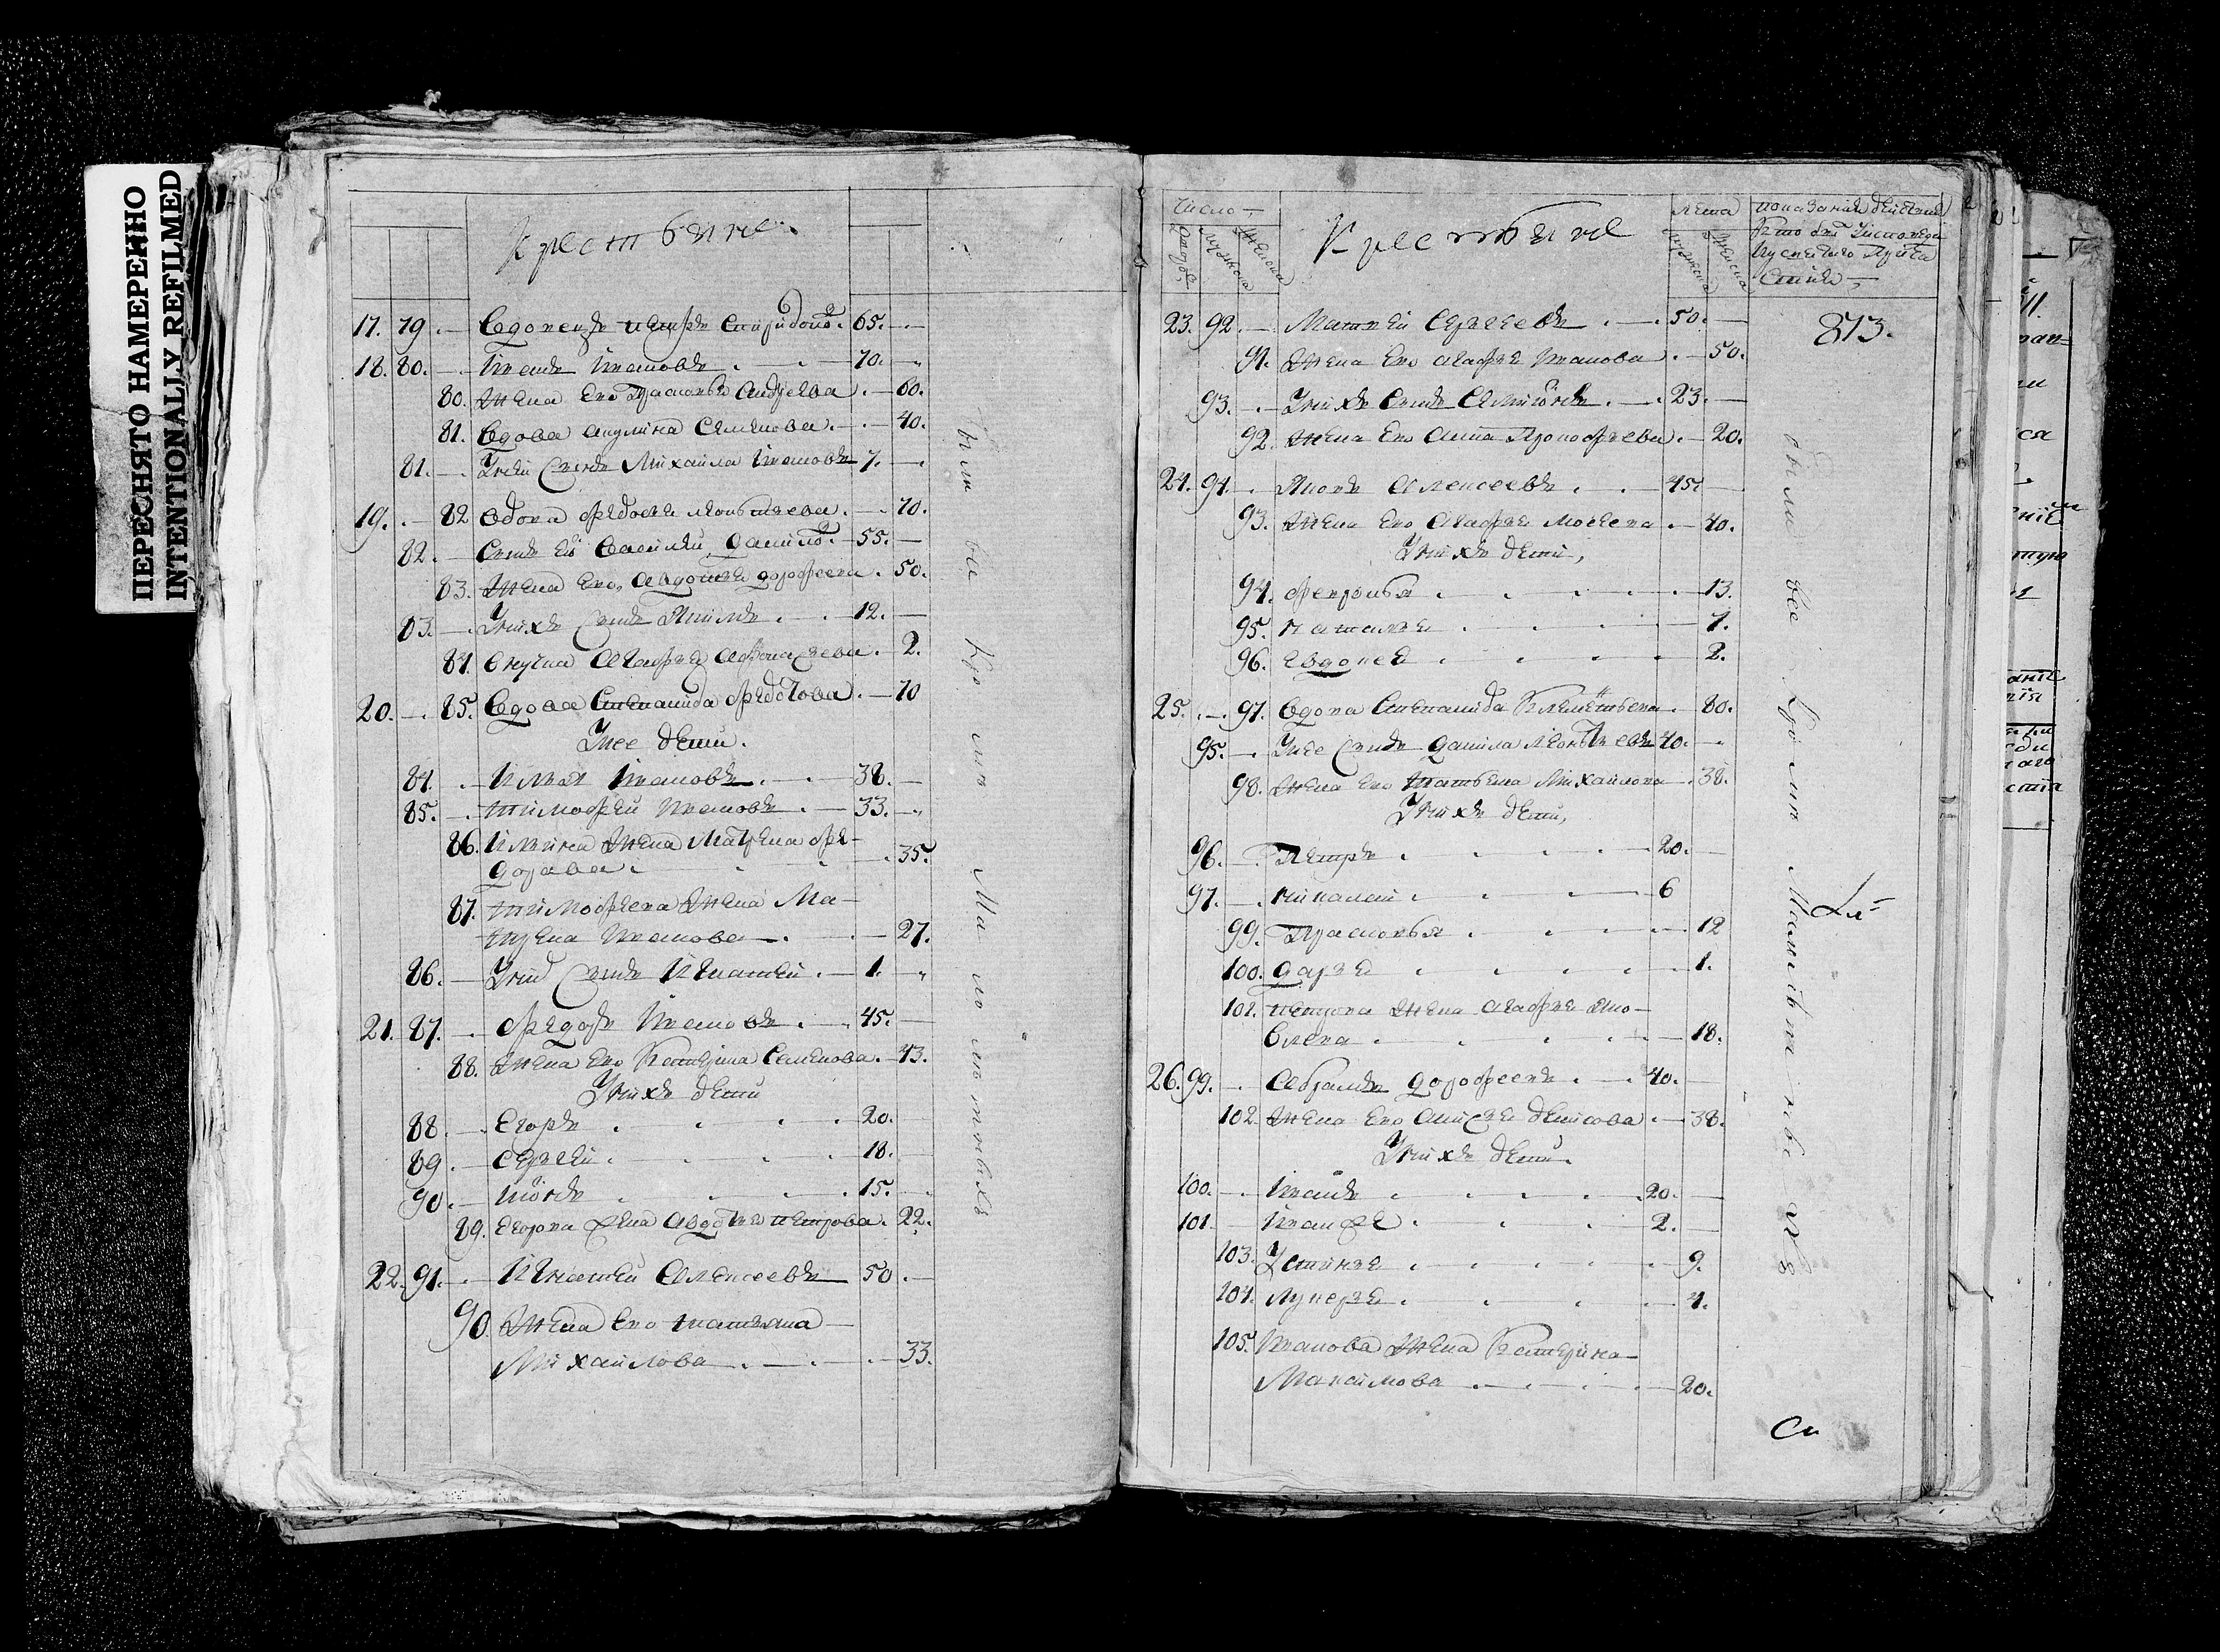 ПЕРЕСНЯТО НАМЕРЕННО
INTENTIONALLY REFILMED
Крестьяне
17. 79. Вдовецъ Петръ Спиридоновъ. 65.
18. 80. Иванъ Ивановъ 70.
80. Жена его Прасковья Андреева. 60.
81. Вдова Акулина Семенова. 40.
81. У ней сынъ Михаила Ивановъ 7.
19. 82 Вдова Федосья Леонтьева. 70.
82. Сынъ ея Василий Данилов. 55.
83. Жена его Авдотья Дорофеева. 50.
83. У нихъ сынъ 12.
84. Внучка Агафья 2.
20. 85. Вдова Степанида Федотова. 70
У нее дети.
84. Илья Ивановъ. 38.
85. Тимофей Ивановъ. 33.
86. Ильина жена Матрена Фе-
дорава. 35.
87. Тимофеева жена Ма-
трена Иванова. 27.
86. сынъ Игнатей. 1.
21. 87. Федоръ Ивановъ. 45.
88. Жена его Катерина Семенова. 43.
У нихъ дети
88. Егоръ 20.
89. Сергей 18.
90. 15.
89. Егорова жена Авдотья Петрова. 22.
22. 91. Игнатей Алексеевъ 50.
90. Жена его Татьяна
Михайлова 33.
были вси кро мя Ма ло
число
Крестьяне
лета
показание действия
кто былъ у исповеди
и у святаго прича
стия
813.
23. 92. Матвей Сергеевъ 50.
91. Жена его Агафья Иванова 50.
93. У нихъ сынъ 23.
92. Жена его Анна Прокофьева. 20.
24. 94. Яковъ Алексеевъ 45.
93. Жена его Агафья Мосеева 40.
У нихъ дети,
94. Февронья 13.
95. Наталья 7.
96. Евдокея 2.
25. 97. Вдова Степанида Клементьева 80.
95. У нее сынъ Данила Леонтьевъ 40.
98. Жена его Татьяна Михайлова 38.
У нихъ дети,
96. Петръ 20.
97. Николай 6
99. Прасковья 12
100. Дарья 1.
101. Петрова жена Агафья Яко-
влева 18.
26. 99. Абрамъ Дорофеевъ 40.
102. Жена его Анисья Денисова 38.
У нихъ дети.
100. Иванъ 20.
101. 2.
103. Устинья 9.
104. Лукерья 4.
105. Иванова жена Катерина
Макаимова 20.
были все